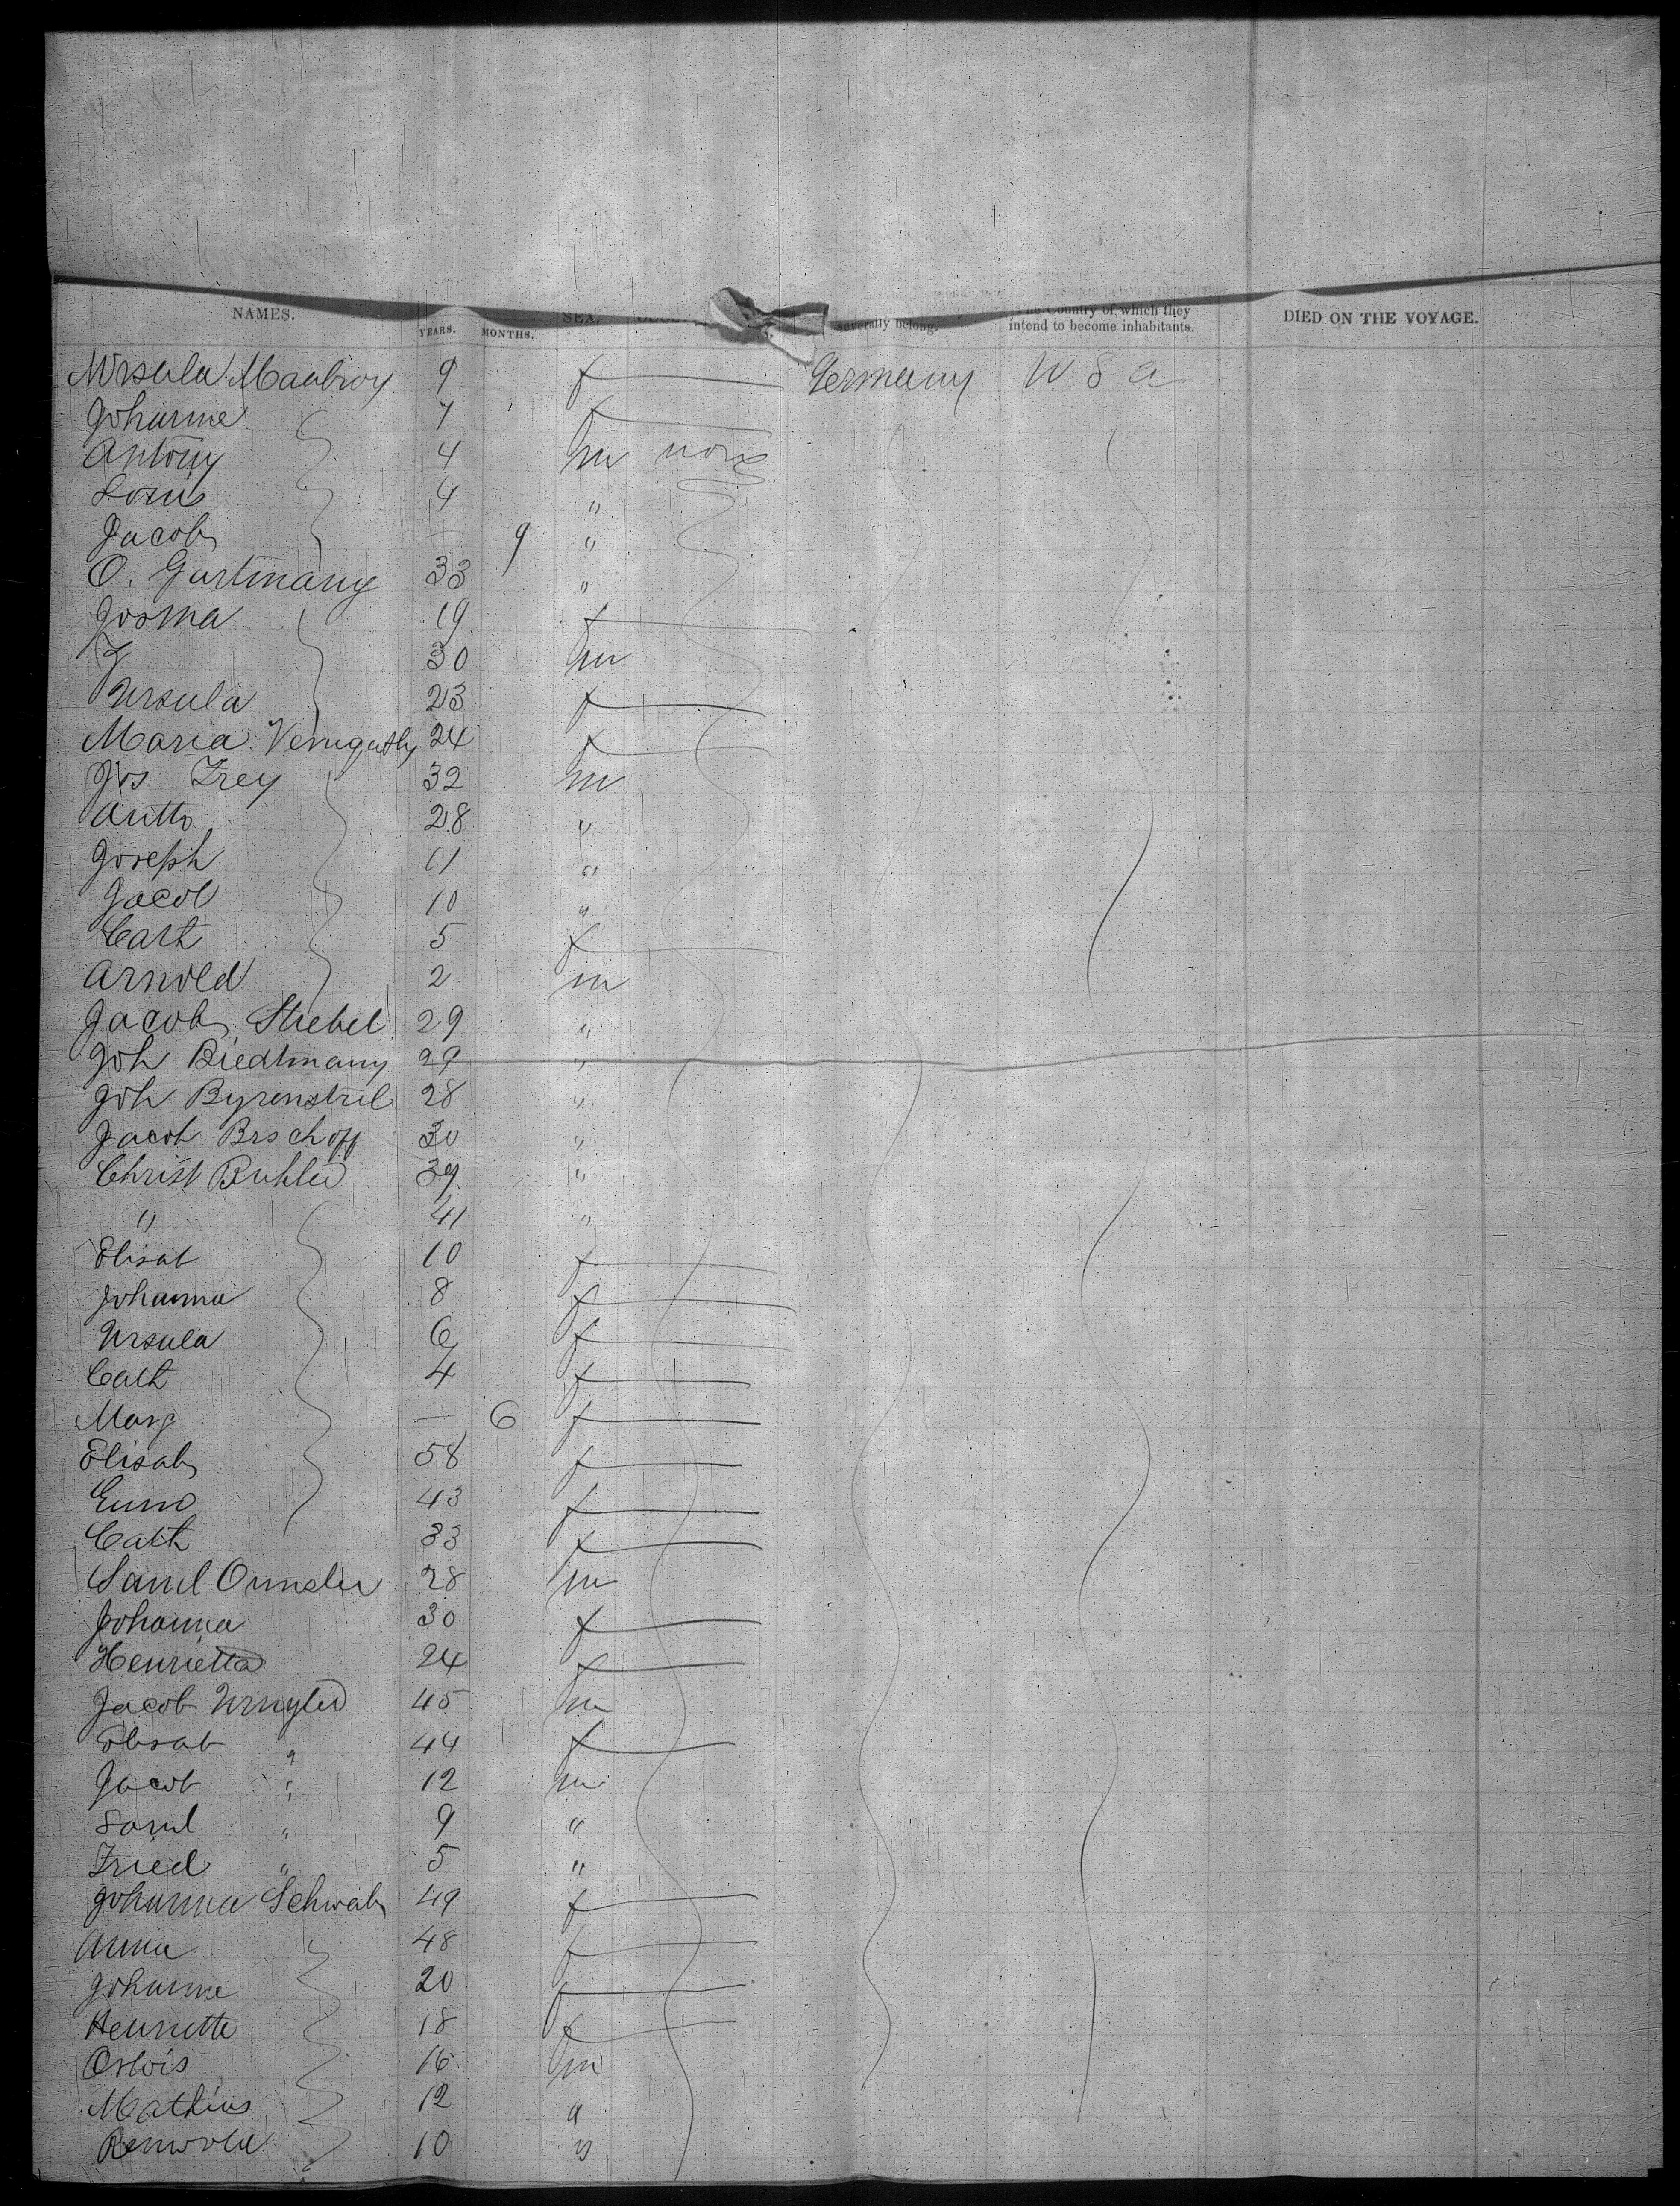 NAMES. YEARS. MONTHS. SEX. severally belong. The Country of which they intend to become inhabitants. DIED ON THE VOYAGE.
Ursula 9 f Germany U S A
Johanne 7 f
Antony 4 m none
Louis 4 "
Jacob — 9 "
O. Gartmann 33 "
Josma 19 f
J 30 m
Ursula 23 f
Maria 24 f
Jos Frey 32 m
ditto 28 "
Joseph 11 "
Jacob 10 "
Cath 5 f
Arnold 2 m
Jacob Strebel 29 "
Joh Biedtmann 29 "
Joh 28 "
Jacob Bischoff 30 "
Christ Buhler 39 "
" 41 "
Elisab 10 f
Johanna 8 f
Ursula 6 f
Cath 4 f
Marg — 6 f
Elisab 58 f
43 f
Cath 33 f
Saml 28 m
Johanna 30 f
Henrietta 24 f
Jacob 45 m
Elisab " 44 f
Jacob " 12 m
Saml " 9 "
Fried " 5 "
Johanna Schwab 49 f
Anna 48 f
Johanne 20 f
Henriette 18 f
16 m
Mathias 12 "
10 "